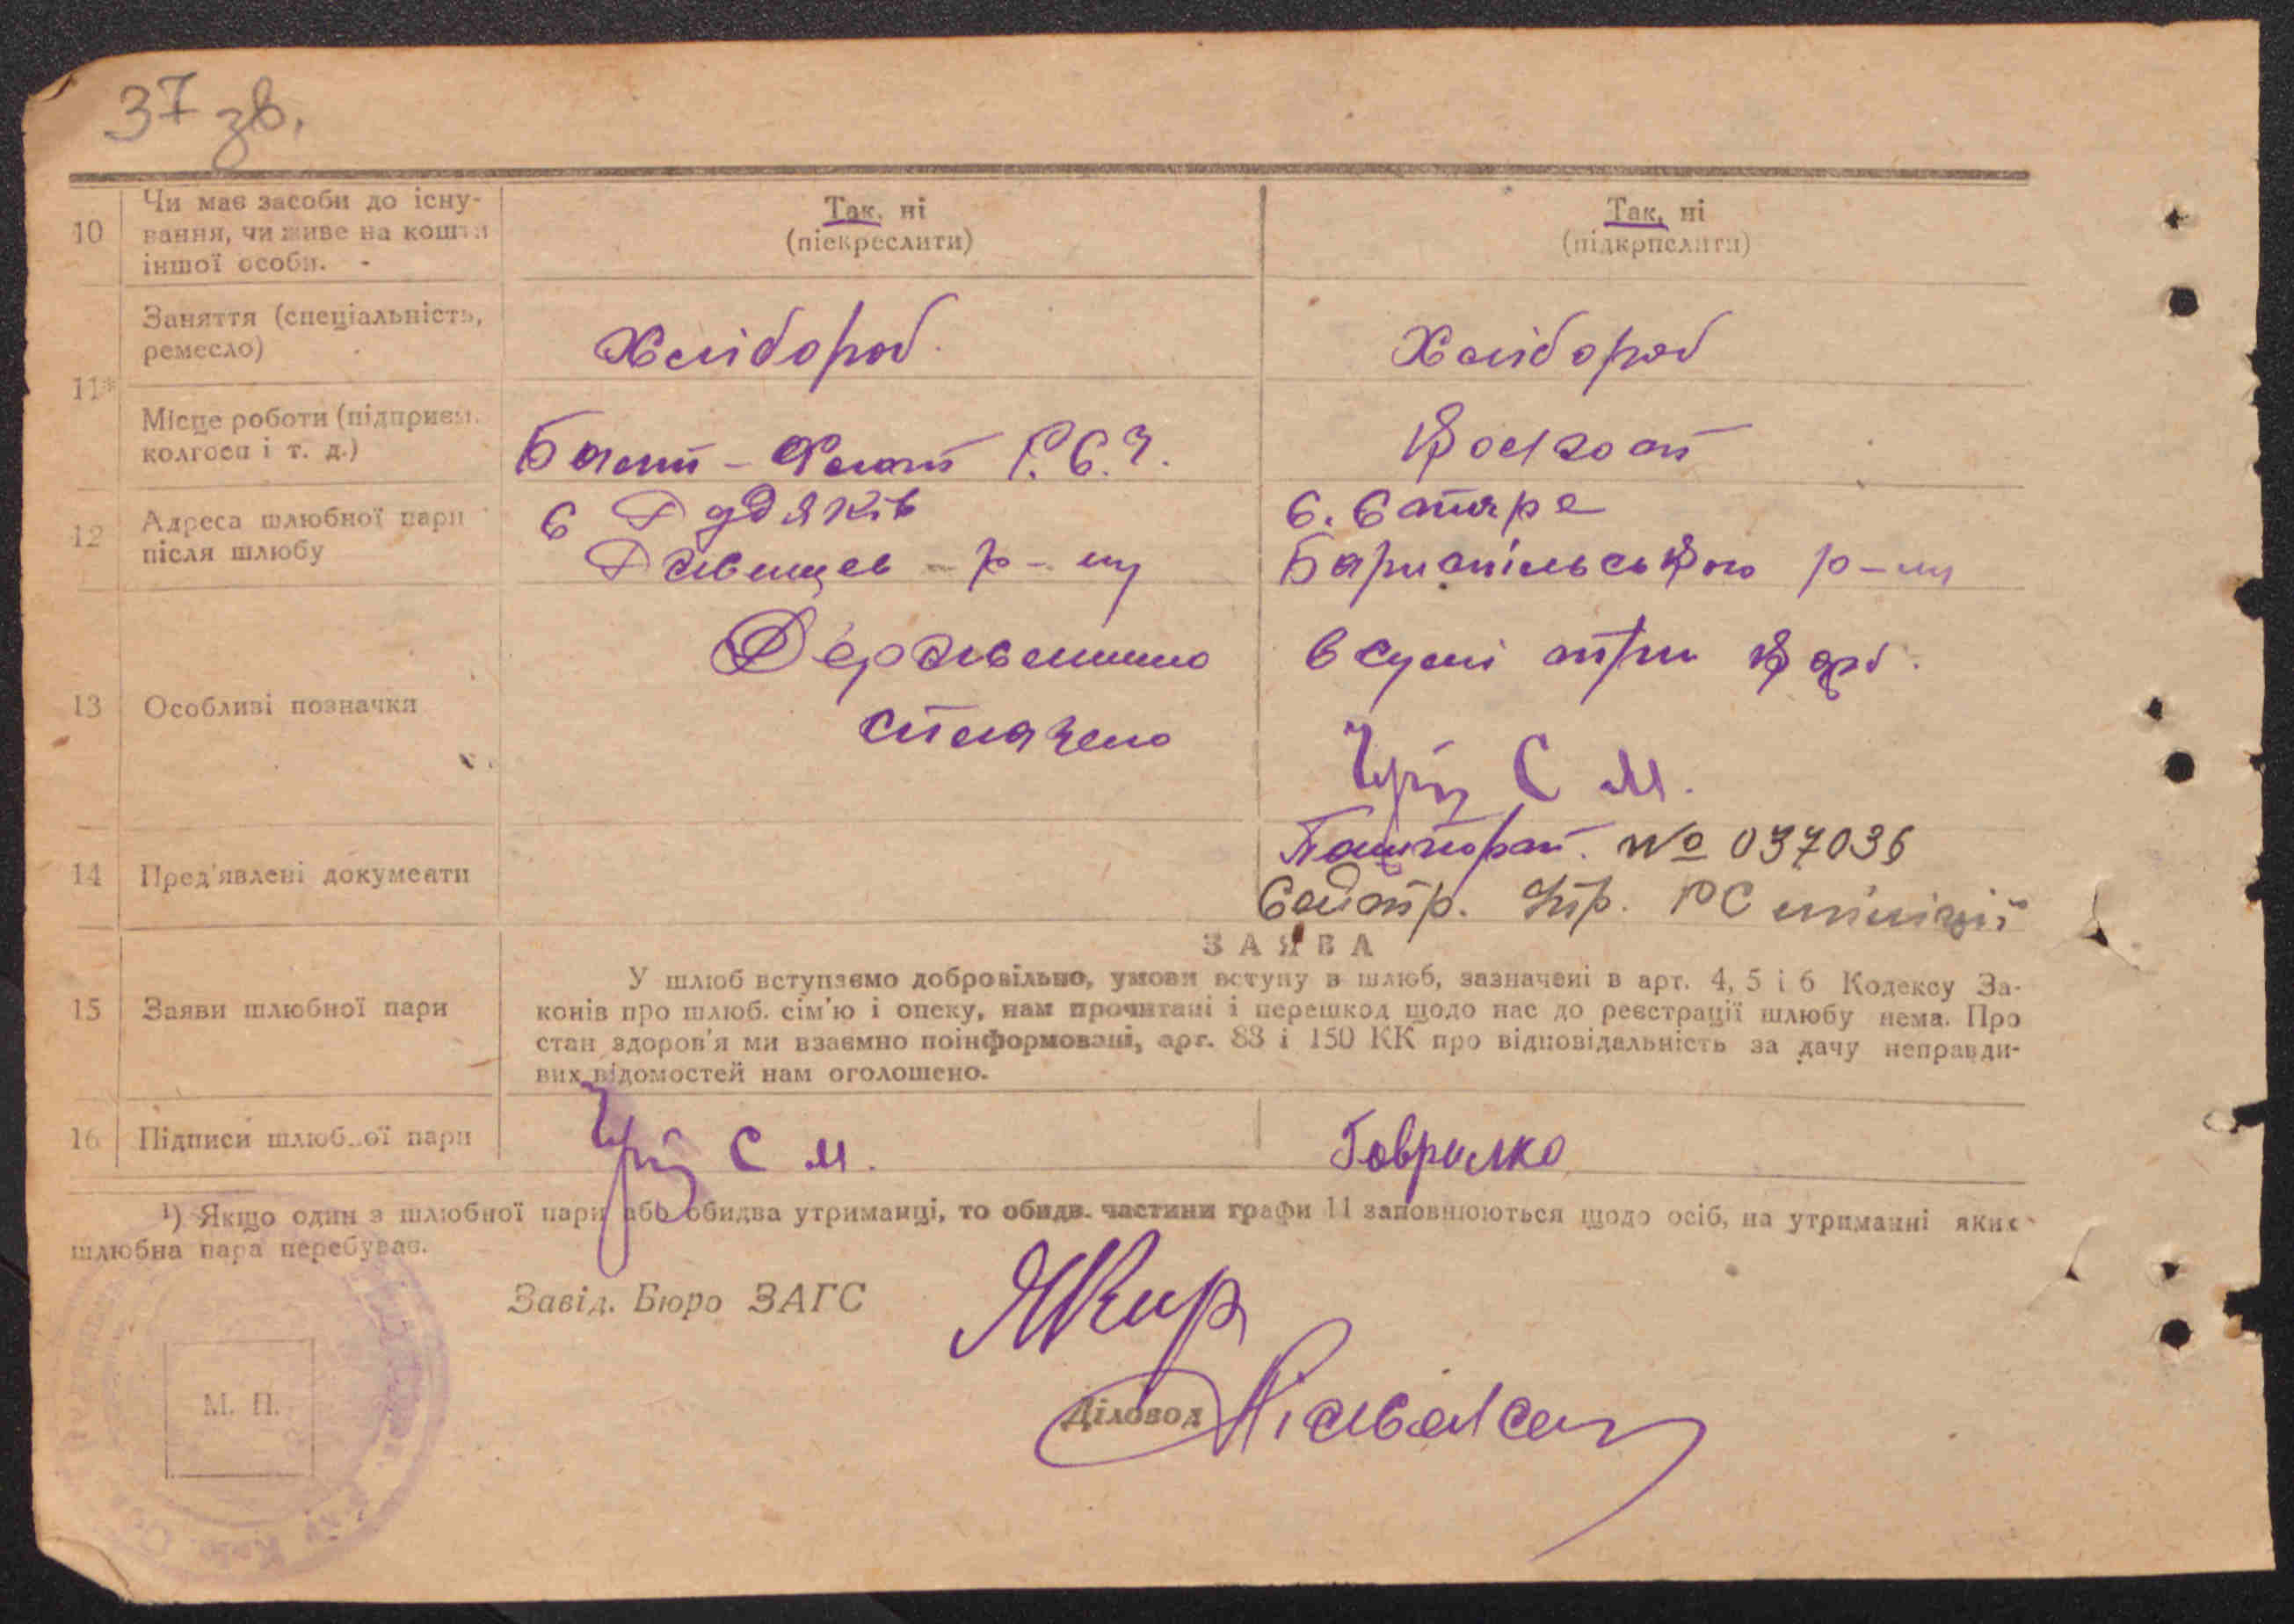 37 зв.
10
Чи має засоби до існу-
вання, чи живе на кошти
іншої особи. -
Так, ні
(піекреслити)
Так, ні
(підкрпслити)
11*
Заняття (спеціальність,
ремесло)
Хлібороб.
Хлібороб
Місце роботи (підприєм.
колгосп і т. д.)
Балт - Флот
Колгосп
12
Адреса шлюбної пари
після шлюбу
С Дудяків
р-ну
с. Старе
Бориспільського р-ну
13
Особливі позначки
Державнино
сплачено
в сумі три карб.
С М.
14
Пред'явлені документи
Пашпорт. № 037036
РС міліції
ЗАЯВА
15
Заяви шлюбної пари
У шлюб вступаємо добровільно, умови вступу в шлюб, зазначені в арт. 4, 5 і 6 Кодексу За-
конів про шлюб. сім'ю і опеку, нам прочитані і перешкод щодо нас до реєстрації шлюбу нема. Про
стан здоров'я ми взаємно поінформовані, арт. 88 і 150 КК про відповідальність за дачу неправди-
вих відомостей нам оголошено.
16
Підписи шлюб..ої пари
С М.
Гаврилко
¹) Якщо один з шлюбної пари або обидва утриманці, то обидв. частини графи 11 заповнюються щодо осіб, на утриманні яких
шлюбна пара перебуває.
Завід. Бюро ЗАГС
Діловод
М. П.